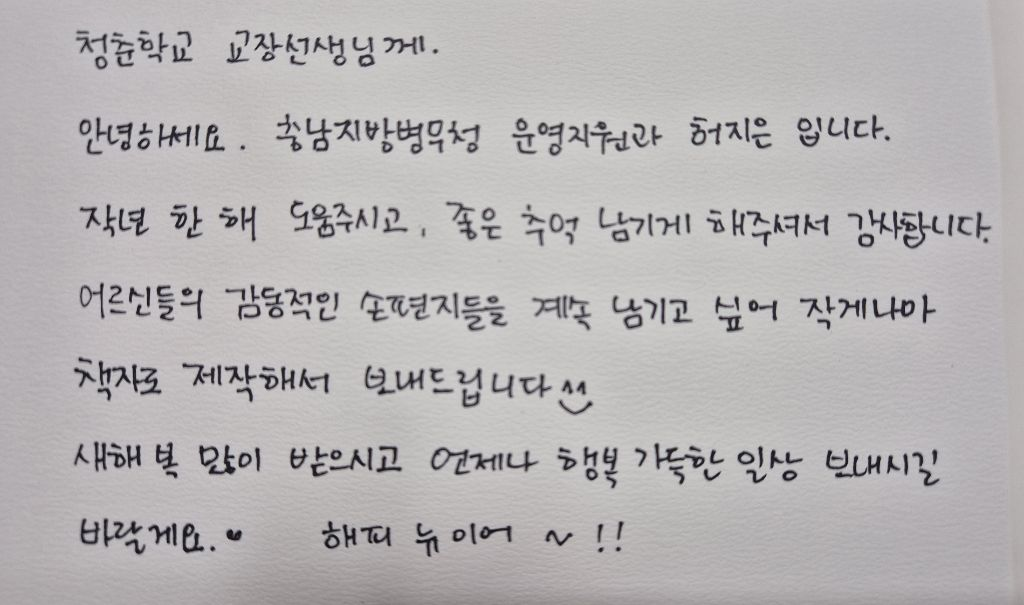 청춘학교 교장선생님께.
안녕하세요. 충남지방병무청 운영지원과 허지은 입니다.
작년 한 해 도움주시고, 좋은 추억 남기게 해주셔서 감사합니다.
어르신들의 감동적인 손편지들을 계속 남기고 싶어 작게나마
책자로 제작해서 보내드립니다^^
새해 복 많이 받으시고 언제나 행복 가득한 일상 보내시길
바랄게요.♥ 해피 뉴이어 ~ !!